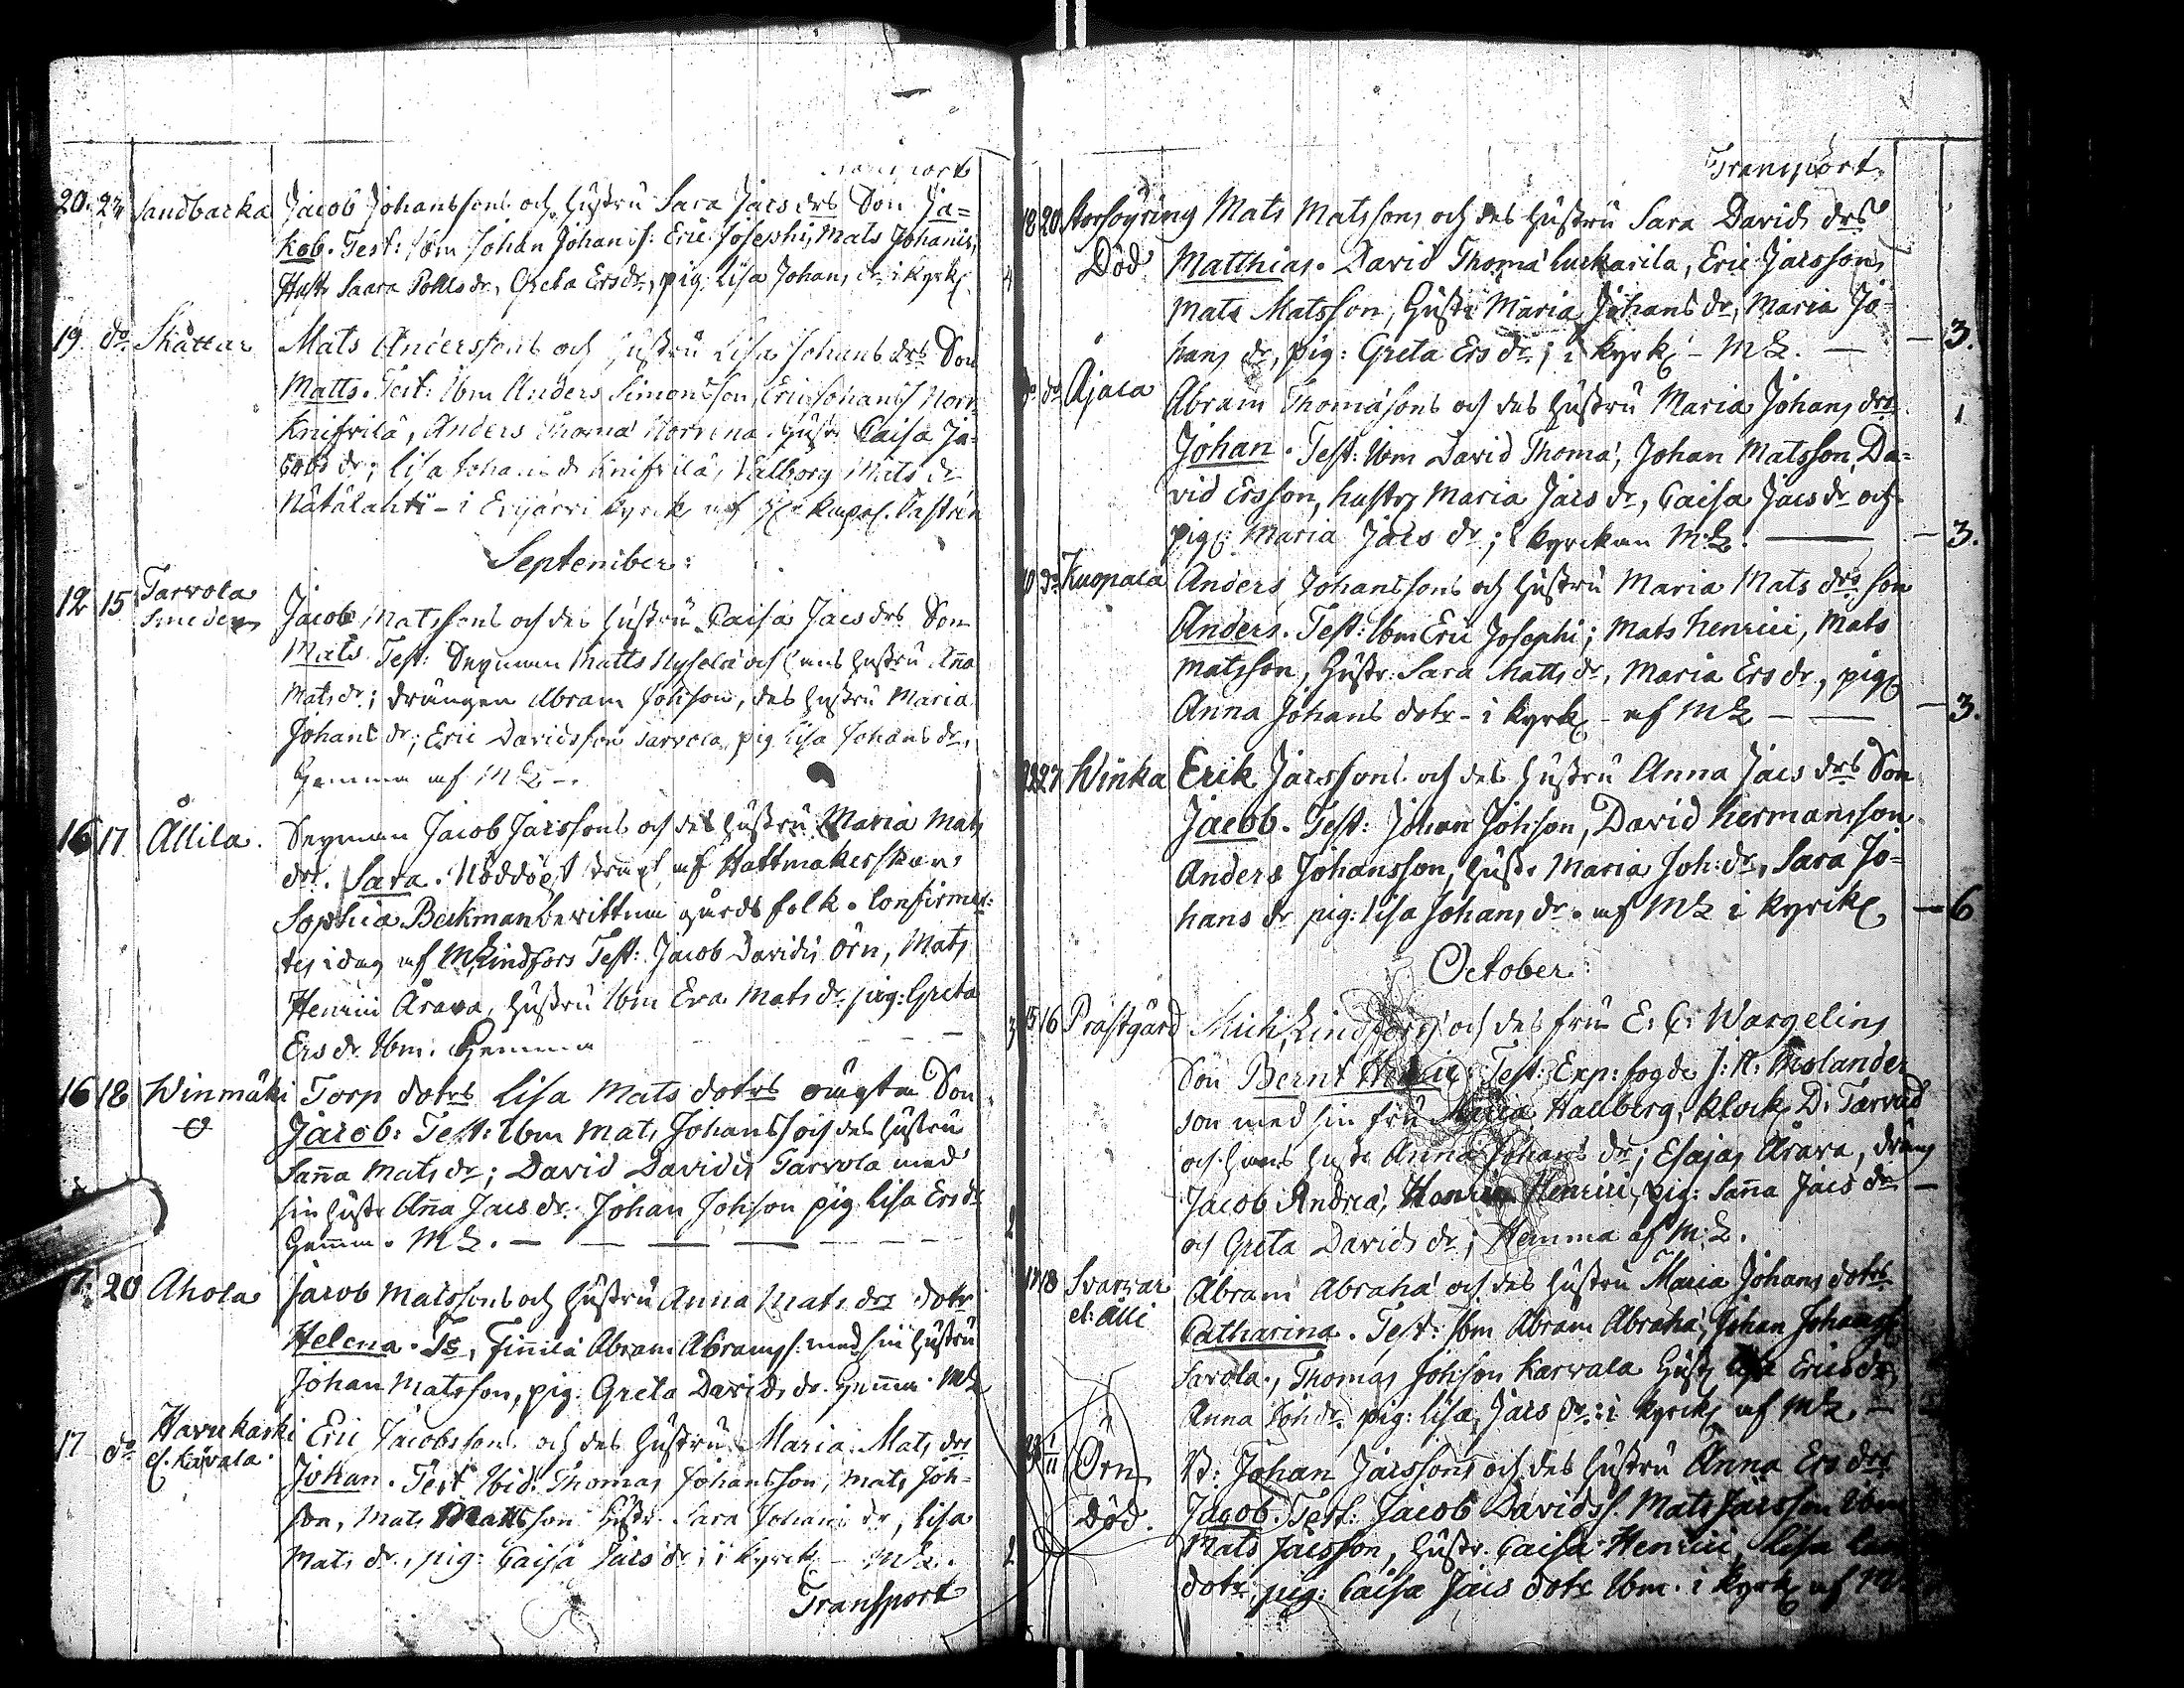 Transport
20. 23 Sandbacka Jacob Johanssons och hustru Sara Jacs drs Son Ja=
kob. Test: Ibm Johan Johanss: Eric Josephi, Mats Johanis,
Hustr Saara Pohls dr, Greta Ersdr, pig: Lisa Johans dr i kyrk. 4
19 do Skåttar Mats Anderssons och hustru Lisa Johans drs Son
Matts. Test: Ibm Anders Simonsson, Eric Johanss Norr
Knifvilä, Anders Thomæ Norrena hustr Caisa Ja=
cobs dr; Lisa Johans dr Knifvilä, Valborg Mats dr
Nätälahti - i Evijärvi kyrck af Castrén
September:
12 15 Tarvola Smeden Jacob Matssons och des hustru Caisa Jacs drs Son
Mats. Test: Sexman Matts och hans hustru Aña
Mats dr; drängen Abram Johsson, des hustru Maria
Johans dr; Eric Davidsson Tarvola, pig Lisa Johans dr,
Hemma af ML -.
16 17 Ållila. Sexman Jacob Jacssons och des hustru Maria Mats
drs. Sara. Nöddöpt af Hattmakerskan
Sophia Beckman gårdsfolk. Confirmer:
tes idag af MLindfors Test: Jacob Davidis Örn, Mats
Henrici Årava, hustru Ibm Eva Mats dr. pig: Greta
Ers dr. Ibm. Hemma 3
16 18 Winmäki Torp dotrs Lisa Mats dotrs oägta Son
Jacob: Test: Ibm Mats Johanss och des hustru
Saña Mats dr; David Davidis Tarvola med
sin hustr Aña Jacs dr. Johan Johsson pig Lisa Ers dr
Hem̃a. ML. — 2
17. 20 Ahola Jacob Matssons och hustru Anna Mats drs dotr
Helena. Ts, Fiñilä Abram Abramss: med sin hustru
Johan Matsson, pig: Greta Davids dr. Hem̃a. ML
17 do Havukaski el. Käväla. Eric Jacobssons och des hustru Maria Mats drs
Johan. Test Ibid: Thomas Johansson, Mats Joh=
son, Mats Mattsson hustr. Sara Johans dr, Lisa
Mats dr, pig: Caisa Jacs dr; i kyrck - ML. 2
Transport
Transport.
18 20 Storsoyring Mats Matssons och des hustru Sara Davids drs
Död Matthias. David Thomæ Luckarila, Eric Jacsson,
Mats Matsson, hustr Maria Johans dr, Maria Jo=
hans dr, pig: Greta Ers dr; i kyrk - ML. — 3.
do do Ajala Abram Thomasons och des hustru Maria Johans drs 1
Johan. Test: Ibm David Thomæ, Johan Matsson, Da=
vid Ersson, hustr Maria Jacs dr, Caisa Jacs dr och
pig: Maria Jacs dr; i kyrckan ML. — 3.
do Kuopala Anders Johanssons och hustru Maria Mats drs son
Anders. Test: Ibm Eric Josephi; Mats Henrici, Mats
Matsson, hustr: Sara Matts dr, Maria Ers dr, pig
Anna Johans dotr - i kyrk - af ML — 3.
27 Winka Erik Jacssons och des hustru Anna Jacs drs Son
Jacob. Test: Johan Johsson, David Hermansson,
Anders Johansson, hustr Maria Joh: dr, Sara Jo=
hans dr pig: Lisa Johans dr. af ML i kyrck — 6
October:
15 16 Prästgård Mich, Lindfors och des fru E: C: Wargelins
Son Bernt Henric. Test: Exp: fogde J: H: Roslander
son med sin fru Maria Hallberg, klock D: Tarvud
och hans hustr Anna Johans dr; Esajas Årava, dräng
Jacob Andreæ, Henric Henrici, pig: Saña Jacs dr —
och Greta Davids dr; Hemma af M: L.
17 18 Svarvar el: Älli Abram Abrahæ och des hustru Maria Johans dotrs
Catharina. Test: Ibm Abram Abrahæ, Johan Johanss
Savola, Thomas Johsson Karvala hustr Lisa Erics dr,
Anna Joh dr pig: Lisa Jacs dr: i kyrck af ML. —
1/11 Örn B: Johan Jacssons och des hustru Anna Ers drs
Död. Jacob. Test: Jacob Davidss. Mats Jacsson Ibm
Mats Jacsson, hustr. Caisa Henrici Lisa
dotr; pig: Caisa Jacs dotr Ibm. i kyrk af M.